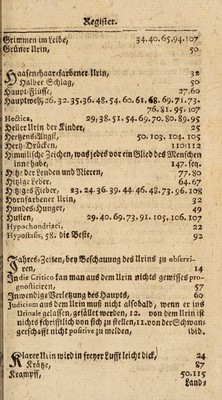 Register.
Grimmen im Leibe, 34.40.65.94.107
Grüner Urin, 50
Haasenhaarsfarbener Urin, 32
Halber Schlag, 50
Haupt-Flüsse, 27.60
Hauptwehe, 26.32.35.36.48.54.60.61.68.69.71.73.
76.81.97.108
Hectica, 29;38.51.54.69.70.80.89.95
Heller Urin der Kinder, 25
Hertzens-Angst, 50.103.104.105
Hertz-Drücken, 110.112
Himmlische Zeichen, was jedes vor ein Glied des Menschen
inne habe, 147. seq.
Hitz der Lenden und Nieren, 77.80
Hitzige Leber, 64.67
Hitziges Fieber, 23.24.36.39.44.46.48.73.96.108
Hornfarbener Urin, 32
Hundes-Hunger, 49
Husten, 29.40.69.73.91.105.106.107
Hypochondriaci, 22
Hypostasis, 58. die Beste, 92
Jahres-Zeiten, bey Beschauung des Urins zu observi-
ren, 14
In die Critico kan man aus dem Urin nichts gewisses pro-
gnosticiren, 57
Inwendige Verletzung des Haupts, 60
Judicium aus dem Urin muß nicht alsobald, wenn er ins
Urinale gelassen, gefället werden, 12. von dem Urin ist
nichts schrifftlich von sich zu stellen, 11. von der Schwan-
gerschafft nicht positive zu melden, ibid.
Klarer Urin wird in freyer Lufft leicht dick, 24
Krätze, 87
Krampff, 50.115
Lands